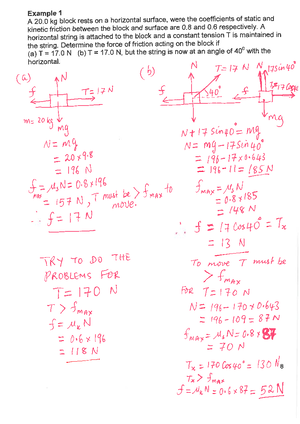 Example 1
A 20.0 kg block rests on a horizontal surface, were the coefficients of static and
kinetic friction between the block and surface are 0.8 and 0.6 respectively. A
horizontal string is attached to the block and a constant tension T is maintained in
the string. Determine the force of friction acting on the block if
(a) T = 17.0 N (b) T = 17.0 N, but the string is now at an angle of 40° with the
horizontal.
(a)
N
f
T=17N
m=20kg
mg
N = mg
= 20×9.8
= 196 N
f = μsN = 0.8×196
max
= 157 N, T must be > fmax to
move.
∴ f = 17 N
TRY TO DO THE
PROBLEMS FOR
T = 170 N
T > fmax
f = μkN
= 0.6×196
= 118 N
(b)
N
T=17 N
f
40°
mg
N
17sin40°
f
17cos40°
mg
N+17 sin40° = mg
N = mg-17sin40°
= 196-17×0.643
= 196-11 = 185 N
fmax = μsN
= 0.8×185
= 148 N
∴ f = 17cos40° = Tx
= 13 N
To move T must be
> fmax
FOR T=170 N
N = 196-170×0.643
= 196-109 = 87N
fmax = μsN = 0.8×87
= 70 N
Tx = 170cos40° = 130 N
Tx > fmax
f = μkN = 0.6×87 = 52N